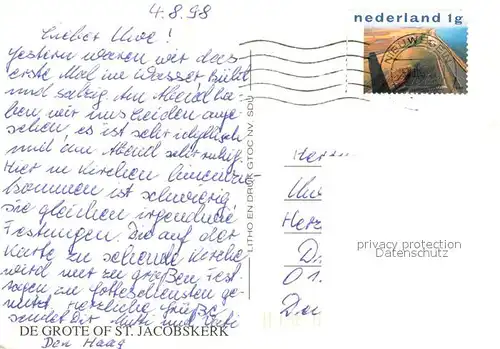 4.8.98
Lieber Uwe!
gestern waren wir das
erste Mal im Wasser
und salzig. Am Abend ha-
ben wir uns Leiden ange-
sehen, es ist sehr idyllisch
und am Abend sehr ruhig.
Hier in Kirchen hineinzu-
kommen ist schwierig,
sie gleichen irgendwie
Festungen. Die auf der
Karte zu sehende Kirche
wird nur zu großen Fest-
tagen zu Gottesdiensten ge-
nutzt. Herzliche Grüße
sendet Dir Mutti und Vati
DE GROTE OF ST. JACOBSKERK
Den Haag
LITHO EN DRUK GTOC NV SDU
nederland 1g
Herrn
Uwe
privacy protection
Datenschutz